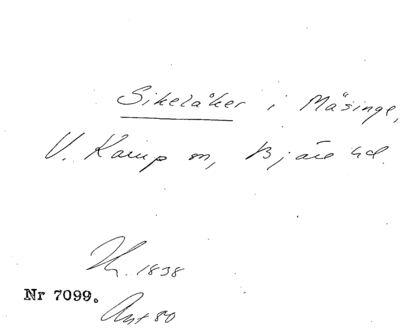 Sikelåker i Mäsinge,
V. Karup sn, Bjäre hd.
1838
Nr 7099.
Ant 80